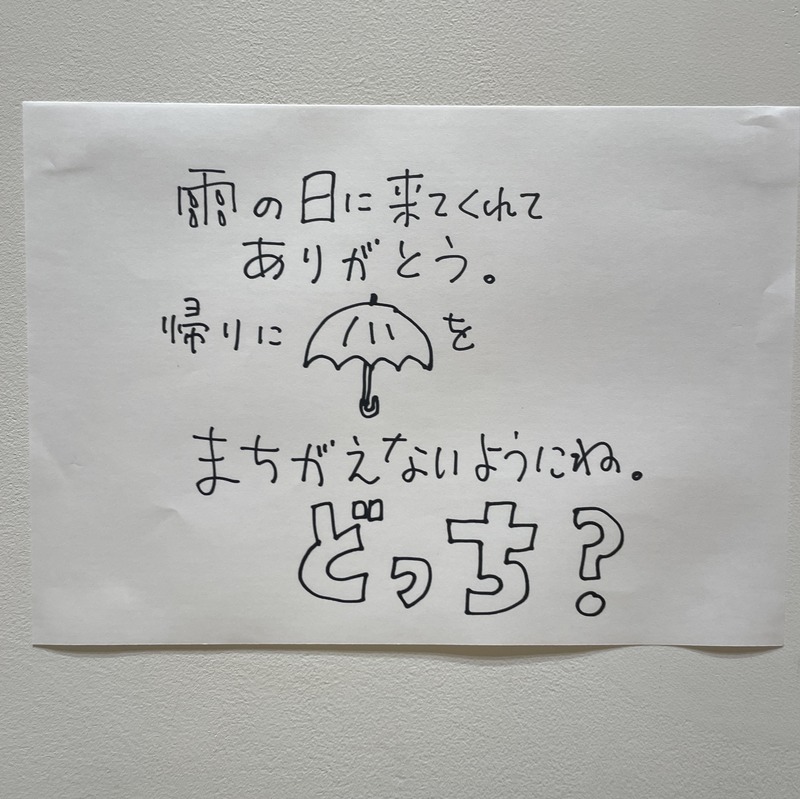 雨の日に来てくれて
ありがとう。
帰りに を
まちがえないようにね。
どっち?